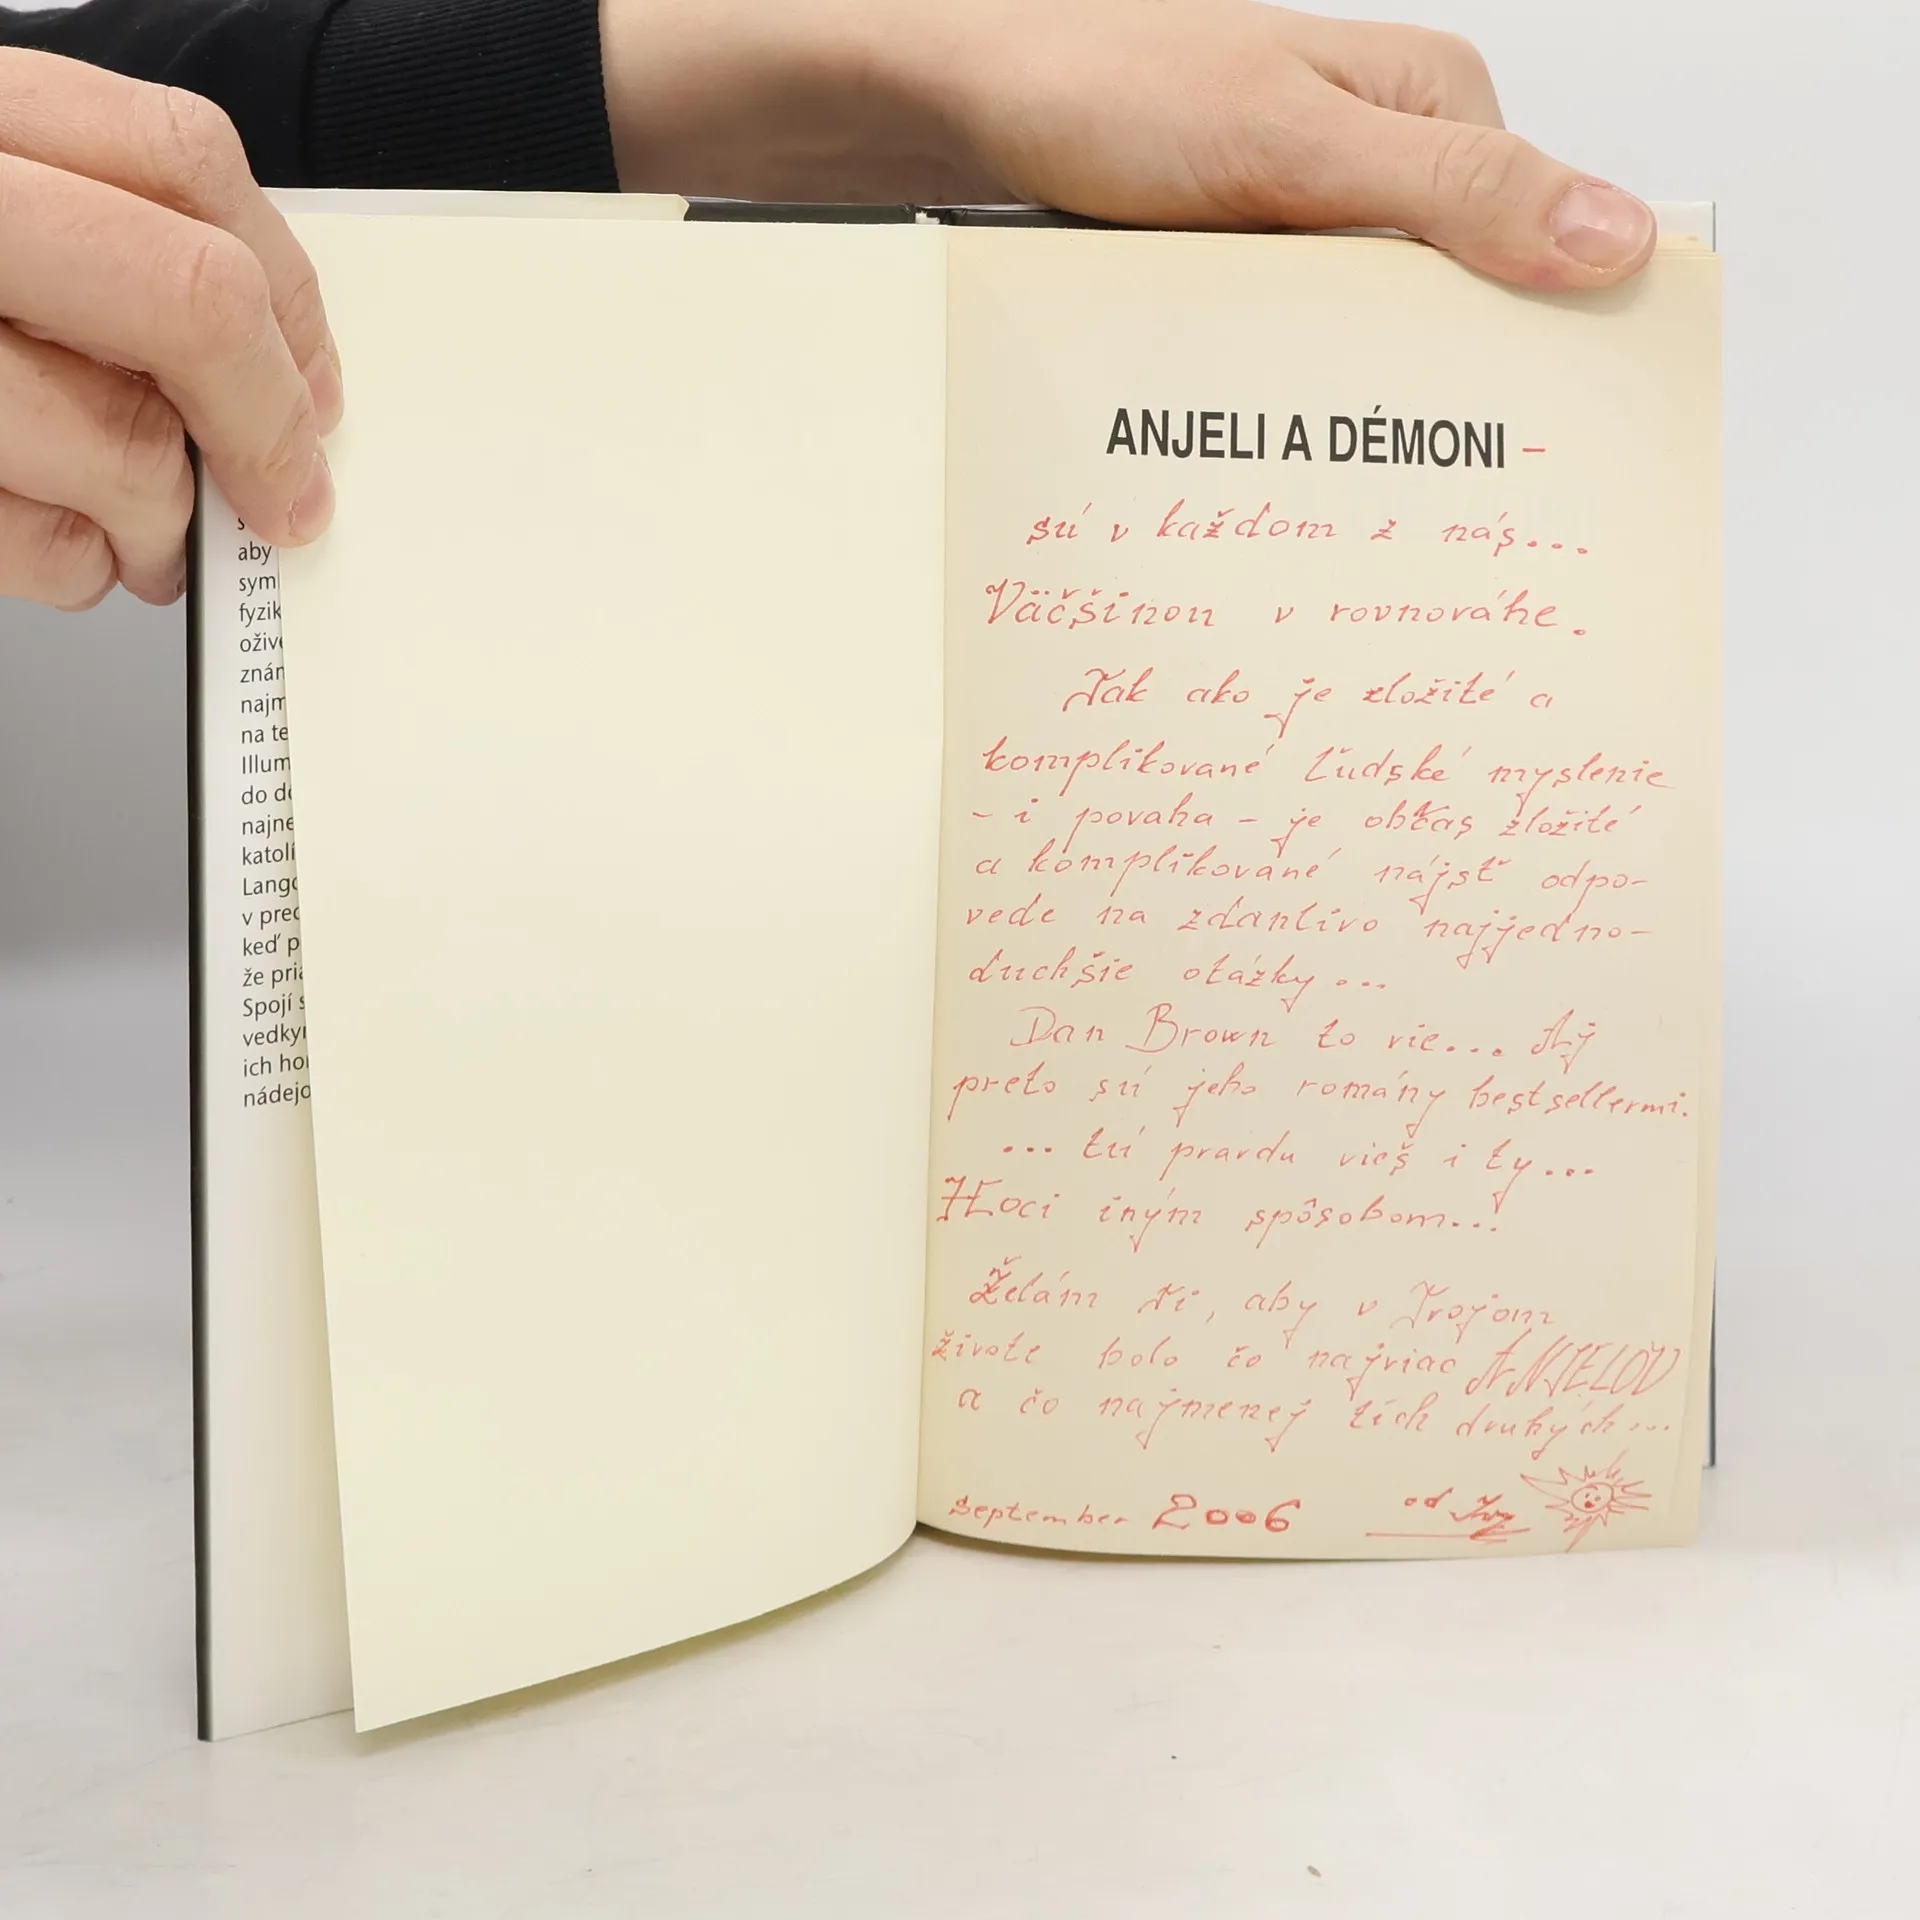 aby
sym
fyzik
ožive
znám
najm
na te
Illum
do do
najne
katolí
Lango
v pred
keď p
že pria
Spojí s
vedkyn
ich ho
nádejo
ANJELI A DÉMONI –
sú v každom z nás...
Väčšinou v rovnováhe.
Tak ako je zložité a
komplikované ľudské myslenie
– i povaha – je občas zložité
a komplikované nájsť odpo-
vede na zdanlivo najjedno-
duchšie otázky...
Dan Brown to vie... Aj
preto sú jeho romány bestsellermi.
... tú pravdu vieš i ty...
Hoci iným spôsobom...
Želám Ti, aby v Tvojom
živote bolo čo najviac ANJELOV
a čo najmenej tích druhých...
september 2006 od